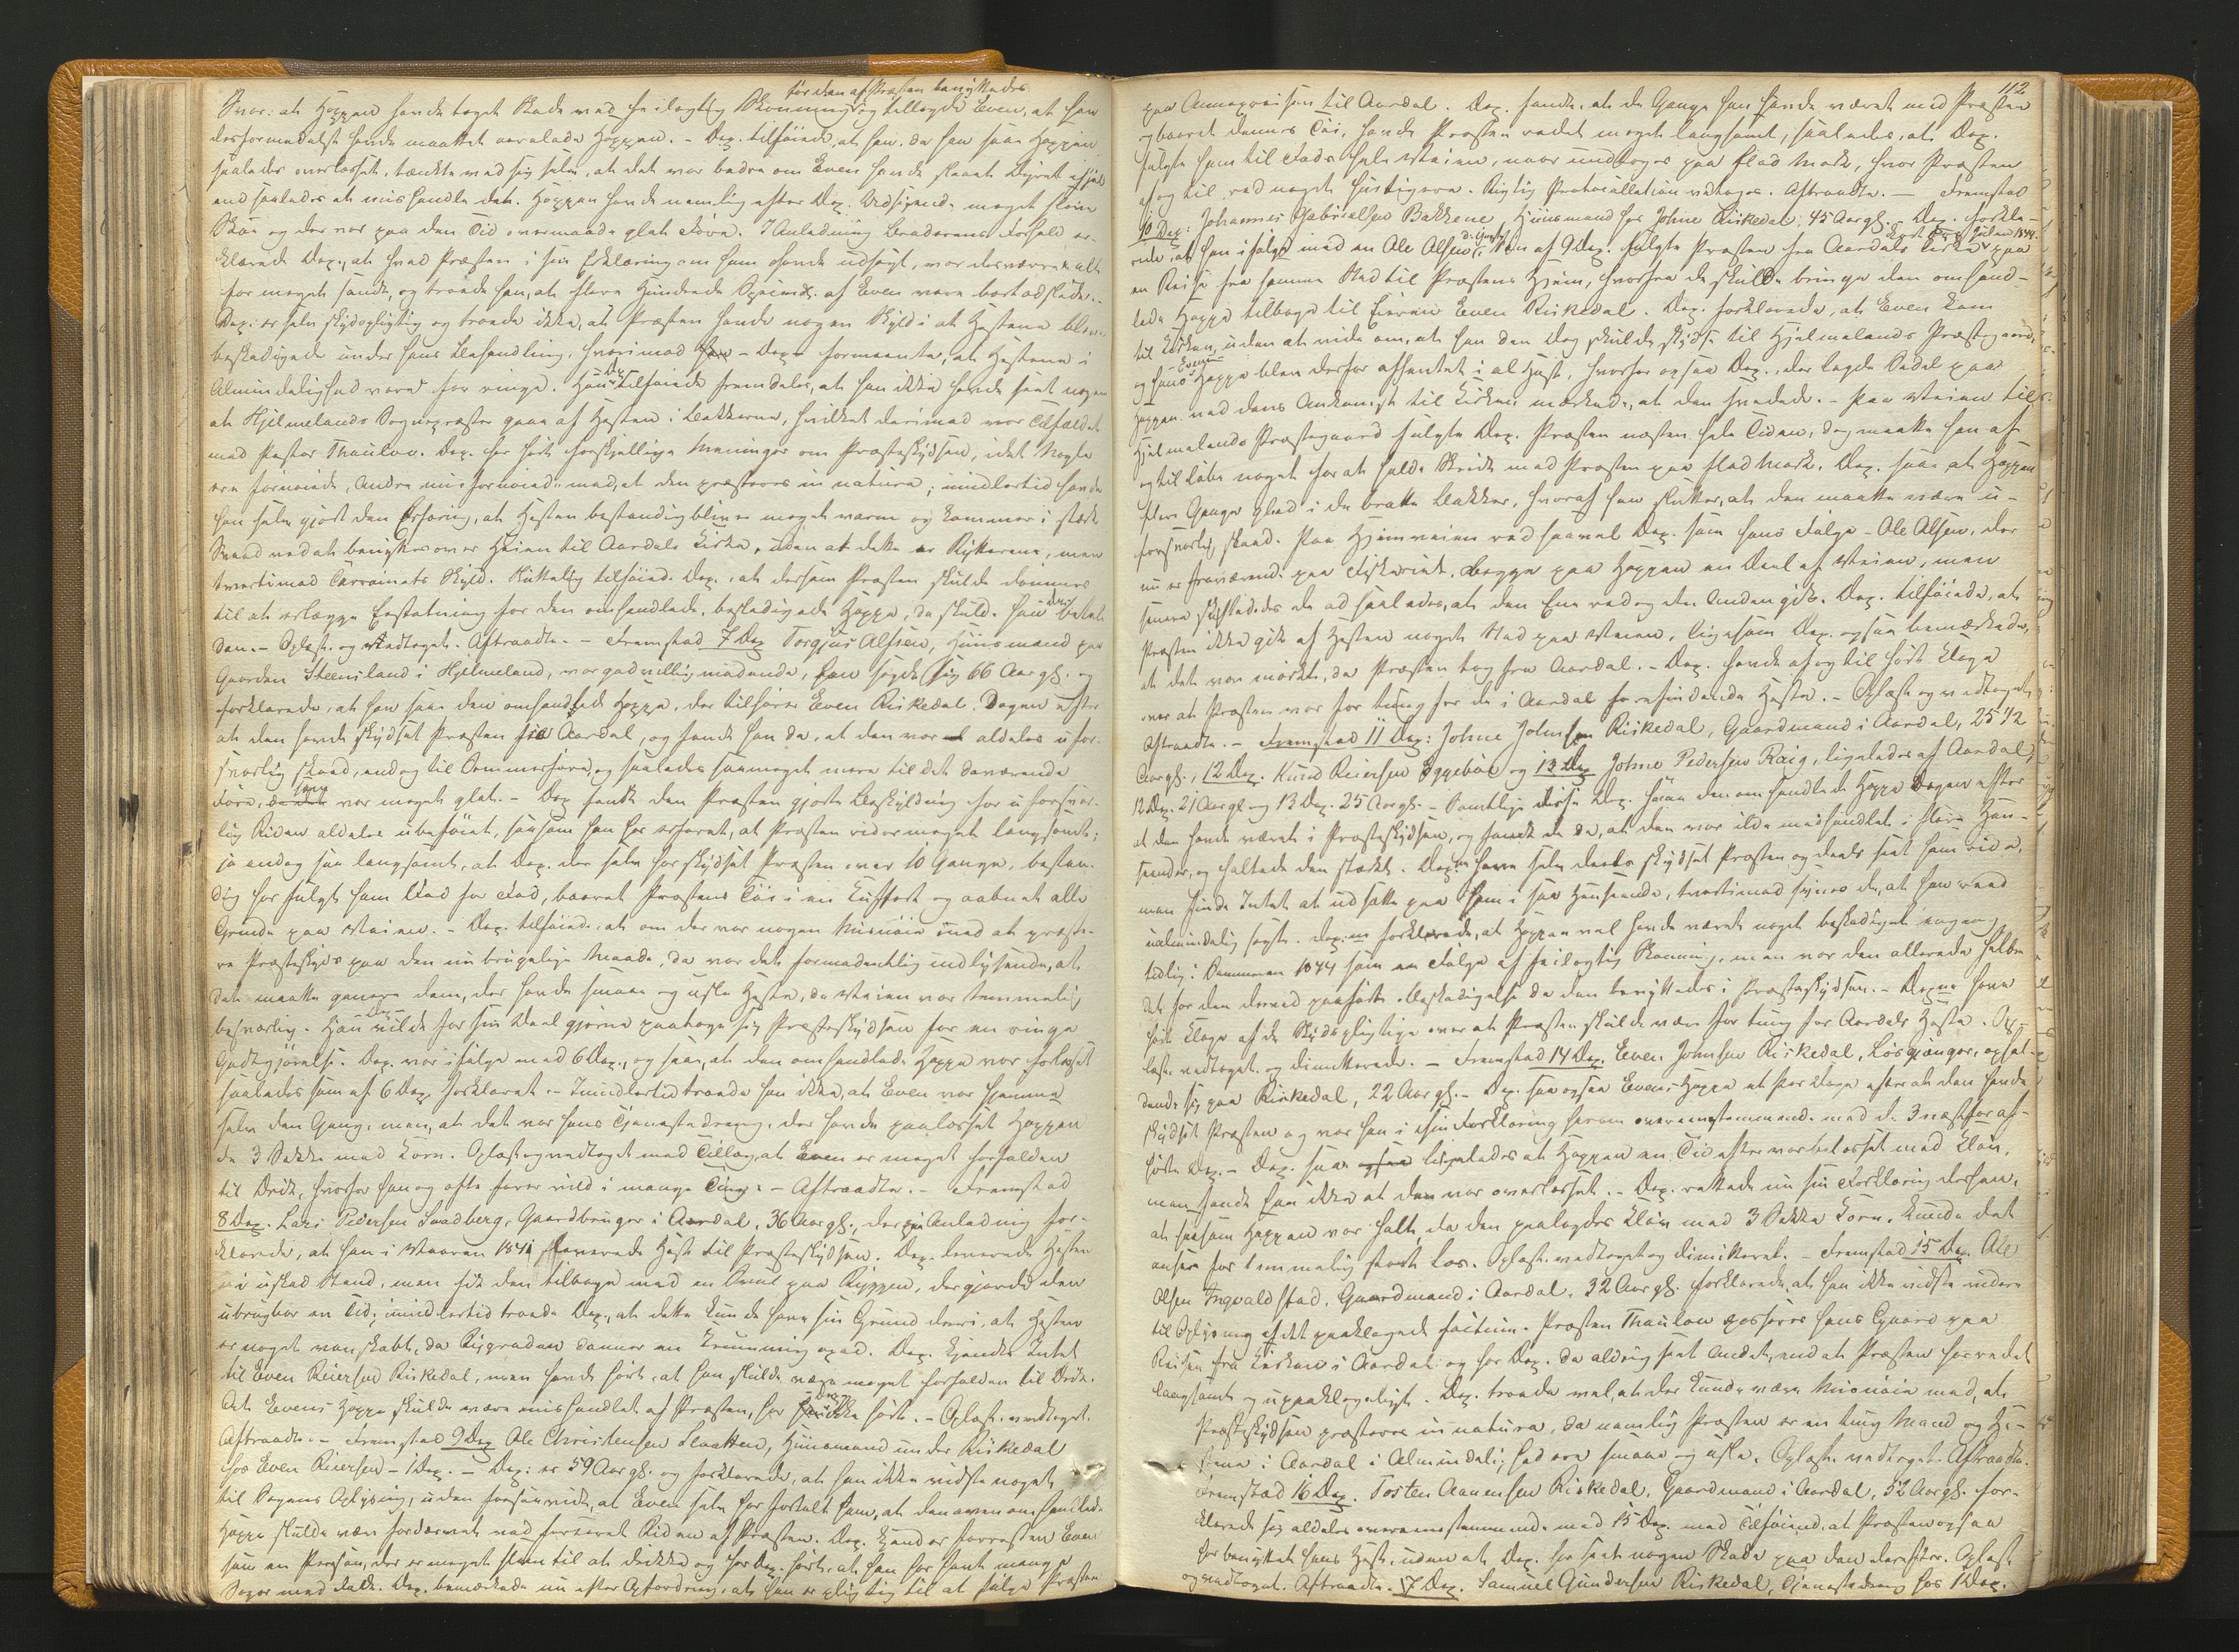 før den af Præsten benyttedes
Svar: at Hoppen havde taget Skade ved feilagtig Skoning og tillagde Even, at han
desformedelst havde maattet aarelade Hoppen. - Dep. tilføiede, at han, da han saae Hoppen
saaledes overlæsset, tænkte ved sig selv, at det var bedre om Even havde slaaet Dyret ihjel
end saaledes at mishandle det. Hoppen havde nemlig efter Dep. Udsigende meget slemme
Skoe og der var paa den Tid overmaade glat Føre. I Anledning Broderens Forhold er-
klærede Dep., at hvad Præsten i sin Erklæring om ham havde udsagt, var desværre alt
for meget sandt, og troede han, at flere Hundrede Speciedl. af Even vare bortødslede. -
Dep: er selv skydspligtig og troede ikke, at Præsten havde nogen Skyld i at Hestene bleve
beskadigede under hans Behandling, hvorimod Dep. formeente, at Hestene i
Almindelighed vare for ringe. Dep. tilføiede fremdeles, at han ikke havde seet nogen
at Hjelmelands Sognepræster gaae af Hesten i Bakkerne, hvilket derimod var Tilfældet
med Pastor Thaulow. Dep. har hørt forskjellige Meninger om Præsteskydsen, idet Nogle
ere fornøiede, Andre misfornøiede med, at den præsteres in natura; imidlertid havde
han selv gjort den Erfaring, at Hesten bestandig bliver meget varm og kommer i stærk
Sveed ved at benyttes over Heien til Aardals Kirke, uden at dette er Rytterens, men
tvertimod Terrainets Skyld. Sluttelig tilføiede Dep., at dersom Præsten skulde dømmes
til at erlægge Erstatning for den omhandlede, beskadigede Hoppe, da skulde han betale
den. - Oplæst og vedtaget. Aftraadte. - Fremstod 7 Dep Torgius Alfsen, Huusmand paa
Gaarden Steensland i Hjelmeland, var godvillig mødende, han sagde sig 66 Aar gl. og
forklarede, at han saae den omhandlede Hoppe, der tilhører Even Riskedal, Dagen efter
at den havde skydset Præsten fra Aardal, og fandt han da, at den var aldeles ufor-
svarlig skoed, endog til Sommerføre, og saaledes saameget mere til det daværende
Føre, som var meget glat. - Dep fandt den Præsten gjorte Beskyldning for uforsvar-
lig Riden aldeles ubeføiet, saasom han har erfaret, at Præsten rider meget langsomt;
ja endog saa langsomt, at Dep. der selv har skydset Præsten over 10 Gange, bestan-
dig har fulgt ham Fod for Fod, baaret Præstens Tøi i en Kuffert og aabnet alle
Grinde paa Veien. - Dep. tilføiede, at om der var nogen Misnøie med at præste-
re Præsteskyds paa den nu brugelige Maade, da var det formedentlig indlysende, at
det maatte genere dem, der havde smaae og usle Heste, da Veien var temmelig
besværlig. Dep. vilde for sin Deel gjerne paatage sig Præsteskydsen for en ringe
Godtgjørelse. Dep. var ifølge med 6 Dep., og saae, at den omhandlede Hoppe var forlæsset
saaledes som af 6 Dep. forklaret. - Imidlertid troede han ikke, at Even var hjemme
selv den Gang, men, at det var hans Tjenestedreng, der havde paalæsset Hoppen
de 3 Sække med Korn. Oplæst og vedtaget med Tillæg, at Even er meget forfalden
til Drik, hvorfor han og ofte farer vild i mange Ting. - Aftraadte. - Fremstod
8 Dep. Lars Pedersen Soadberg, Gaardbruger i Aardal, 36 Aar gl., der paa Anledning for-
klarede, at han i Vaaren 1841 leverede Hest til Præsteskydsen. Dep. leverede Hesten
i uskad Stand, men fik den tilbage med en Buul paa Ryggen, der gjorde den
ubrugbar en Tid; imidlertid troede Dep., at dette kunde have sin Grund deri, at Hesten
er noget vanskabt, da Rygraden danner en Krumning opad. Dep. kjendte Intet
til Even Reiersen Riskedal, men havde hørt, at han skulde være meget forfalden til Drik.
At Evens Hoppe skulde være mishandlet af Præsten, har Dep. ikke hørt. - Oplæst. vedtaget.
Aftraadte. - Fremstod 9 Dep Ole Christensen Slaatten, Huusmand under Riskedal
hos Even Reiersen - 1 Dep. - Dep: er 59 Aar gl. og forklarede, at han ikke vidste noget
til Sagens Oplysning, uden forsaavidt, at Even selv har fortalt ham, at den ovenomhandlede
Hoppe skulde være fordærvet ved forceret Riden af Præsten. Dep. kjender forresten Even
som en Person, der er meget slem til at drikke og har Dep. hørt, at han har havt mange
Sager med Folk. Dep. bemærkede nu efter Opfordring, at han er pligtig til at følge Præsten
112
paa Annexreisen til Aardal. Dep. fandt, at de Gange han havde været med Præsten
og baaret dennes Tøi, havde Præsten redet meget langsomt, saaledes, at Dep.
fulgte ham til Fods hele Veien, naar undtages paa flad Mark, hvor Præsten
af og til red noget hurtigere. Rigtig Protocollation vedtages. Aftraadte. - Fremstod
10 Dep: Johannes Gabrielsen Bakkene, Huusmand hos Johne Riskedal, 45 Aar gl. Dep. forkla-
rede, at han ifølge med en Ole Alfsen, Søn af 9 Dep. fulgte Præsten fra Aardals Kirke paa
en Reise fra samme Sted til Præstens Hjem, hvorfra de skulde bringe den omhand-
lede Hoppe tilbage til Eieren Even Riskedal. Dep. forklarede, at Even kom
til Kirken, uden at vide om, at han den Dag skulde skydse til Hjelmelands Præstegaard,
og Evens Hoppe blev derfor afhentet i al Hast, hvorfor ogsaa Dep., der lagde Sadel paa
Hoppen ved dens Ankomst til Kirken, mærkede, at den svedede. - Paa Veien til
Hjelmelands Præstegaard fulgte Dep. Præsten næsten hele Tiden, dog maatte han af
og til løbe noget for at holde Skridt med Præsten paa flad Mark. Dep. saae at Hoppen
flere Gange gled i de bratte Bakker, hvoraf han slutter, at den maatte være u-
forsvarlig skoed. Paa Hjemveien red saavel Dep. som hans Følge - Ole Alfsen, der
nu er fraværende paa Fiskeriet, begge paa Hoppen en Deel af Veien, men
senere skiftedes de ad saaledes, at den Ene red og den Anden gik. Dep. tilføiede, at
Præsten ikke gik af Hesten noget Sted paa Veien, ligesom Dep. ogsaa bemærkede,
at det var mørkt, da Præsten tog fra Aardal. - Dep. havde af og til hørt Klage
over at Præsten var for tung for de i Aardal forefindende Heste. - Oplæst og vedtaget.
Aftraadte. - Fremstod 11 Dep: Johne Johnsen Riskedal, Gaardmand i Aardal, 25 1/2
Aar gl., 12 Dep. Knud Reiersen Eggebøe og 13 Dep Johne Pedersen Raig, ligeledes af Aardal,
12 Dep. 21 Aar gl. og 13 Dep. 25 Aar gl. - Samtlige disse Dep. saae den omhandlede Hoppe Dagen efter
at den havde været i Præsteskydsen, og fandt de da, at den var ilde medhandlet i flere Hen-
seender, og haltede den stærkt. Dep. have selv deels skydset Præsten og deels seet ham ride,
men finde Intet at udsætte paa ham i saa Henseende, tvertimod synes de, at han reed
ualmindelig sagte. Dep. forklarede, at Hoppen vel havde været noget beskadiget engang
tidlig i Sommeren 1844 som en Følge af feilagtig Skoning, men var den allerede helbre-
det for den derved paaførte Beskadigelse da den benyttedes i Præsteskydsen. - Dep. have
hørt Klage af de Skydspligtige over at Præsten skulde være for tung for Aardals Heste. Op-
læst. vedtaget. og dimitterede. - Fremstod 14 Dep. Even Johnsen Riskedal, Løsgjænger, ophol-
dende sig paa Riskedal, 22 Aar gl. - Dep. saae ogsaa Evens Hoppe et Par Dage efter at den havde
skydset Præsten og var han i sin Forklaring herom overensstemmende med de 3 næstforaf-
hørte Dep. - Dep. saae ligeledes at Hoppen en Tid efter var belæsset med Kløv,
men fandt han ikke at den var overlæsset. - Dep. rettede nu sin Forklaring derhen,
at saasom Hoppen var halt, da den paalagdes Kløv med 3 Sække Korn, kunde det
ansees for temmelig stort Læs. Oplæst. vedtaget og dimitteret. - Fremstod 15 Dep. Ole
Olsen Ingvaldstad, Gaardmand i Aardal, 32 Aar gl. forklarede, at han ikke vidste videre
til Oplysning af det paaklagede factum. Præsten Thaulow passerer hans Gaard paa
Reisen fra Kirken i Aardal og har Dep. da aldrig seet Andet, end at Præsten har redet
langsomt og upaaklageligt. Dep. troede vel, at der kunde være Misnøie med, at
Præsteskydsen præsteres in natura, da nemlig Præsten er en tung Mand og He-
stene i Aardal i Almindelighed ere smaae og usle. Oplæst. vedtaget. Aftraadte.
Fremstod 16 Dep. Tosten Aanensen Riskedal, Gaardmand i Aardal, 52 Aar gl. for-
klarede sig aldeles overeensstemmende med 15 Dep. med Tilføiende, at Præsten ogsaa
har benyttet hans Hest, uden at Dep. har seet nogen Skade paa den derefter. Oplæst
og vedtaget. Aftraadte. 17 Dep. Samuel Gundersen Riskedal, Tjenestedreng hos 1 Dep.